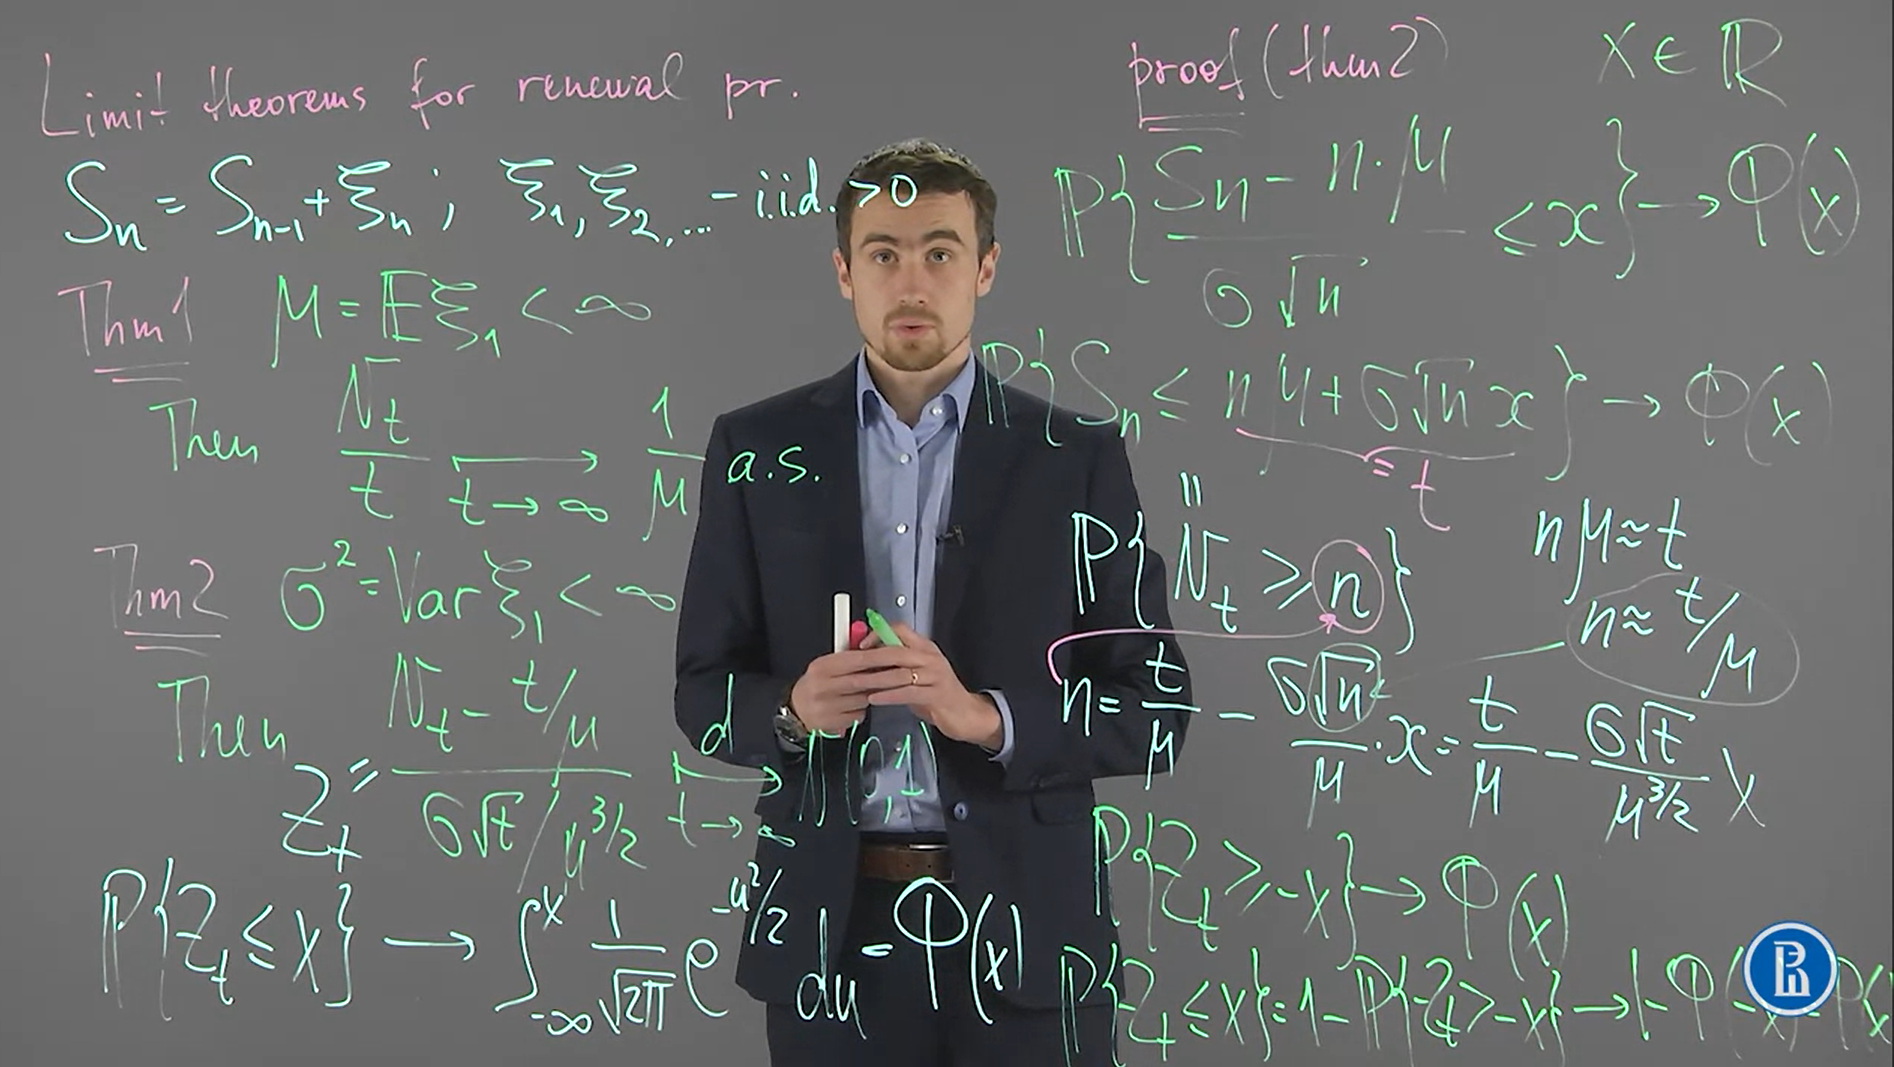 Limit theorems for renewal pr.
Sₙ = Sₙ₋₁ + ξₙ ; ξ₁, ξ₂, ... - i.i.d. >0
Thm1 μ = 𝔼ξ₁ < ∞
Then Nₜ/t → 1/μ a.s.
t→∞
Thm2 σ² = Var ξ₁ < ∞
Then Zₜ = (Nₜ - t/μ) / (σ√t/μ^{3/2}) →ᵈ N(0,1)
t→∞
ℙ{Zₜ ≤ x} → ∫_{-∞}^{x} 1/√2π e^{-u²/2} du = Φ(x)
proof (thm2) x ∈ ℝ
ℙ{(Sₙ - n·μ)/(σ√n) ≤ x} → Φ(x)
ℙ{Sₙ ≤ nμ + σ√n x} → Φ(x)
= t
||
ℙ{Nₜ ≥ n}
nμ ≈ t
n ≈ t/μ
n = t/μ - σ√n/μ · x = t/μ - σ√t/μ^{3/2} x
ℙ{Zₜ ≥ -x} → Φ(x)
ℙ{Zₜ ≤ x} = 1 - ℙ{Zₜ > x} → 1 - Φ(-x)